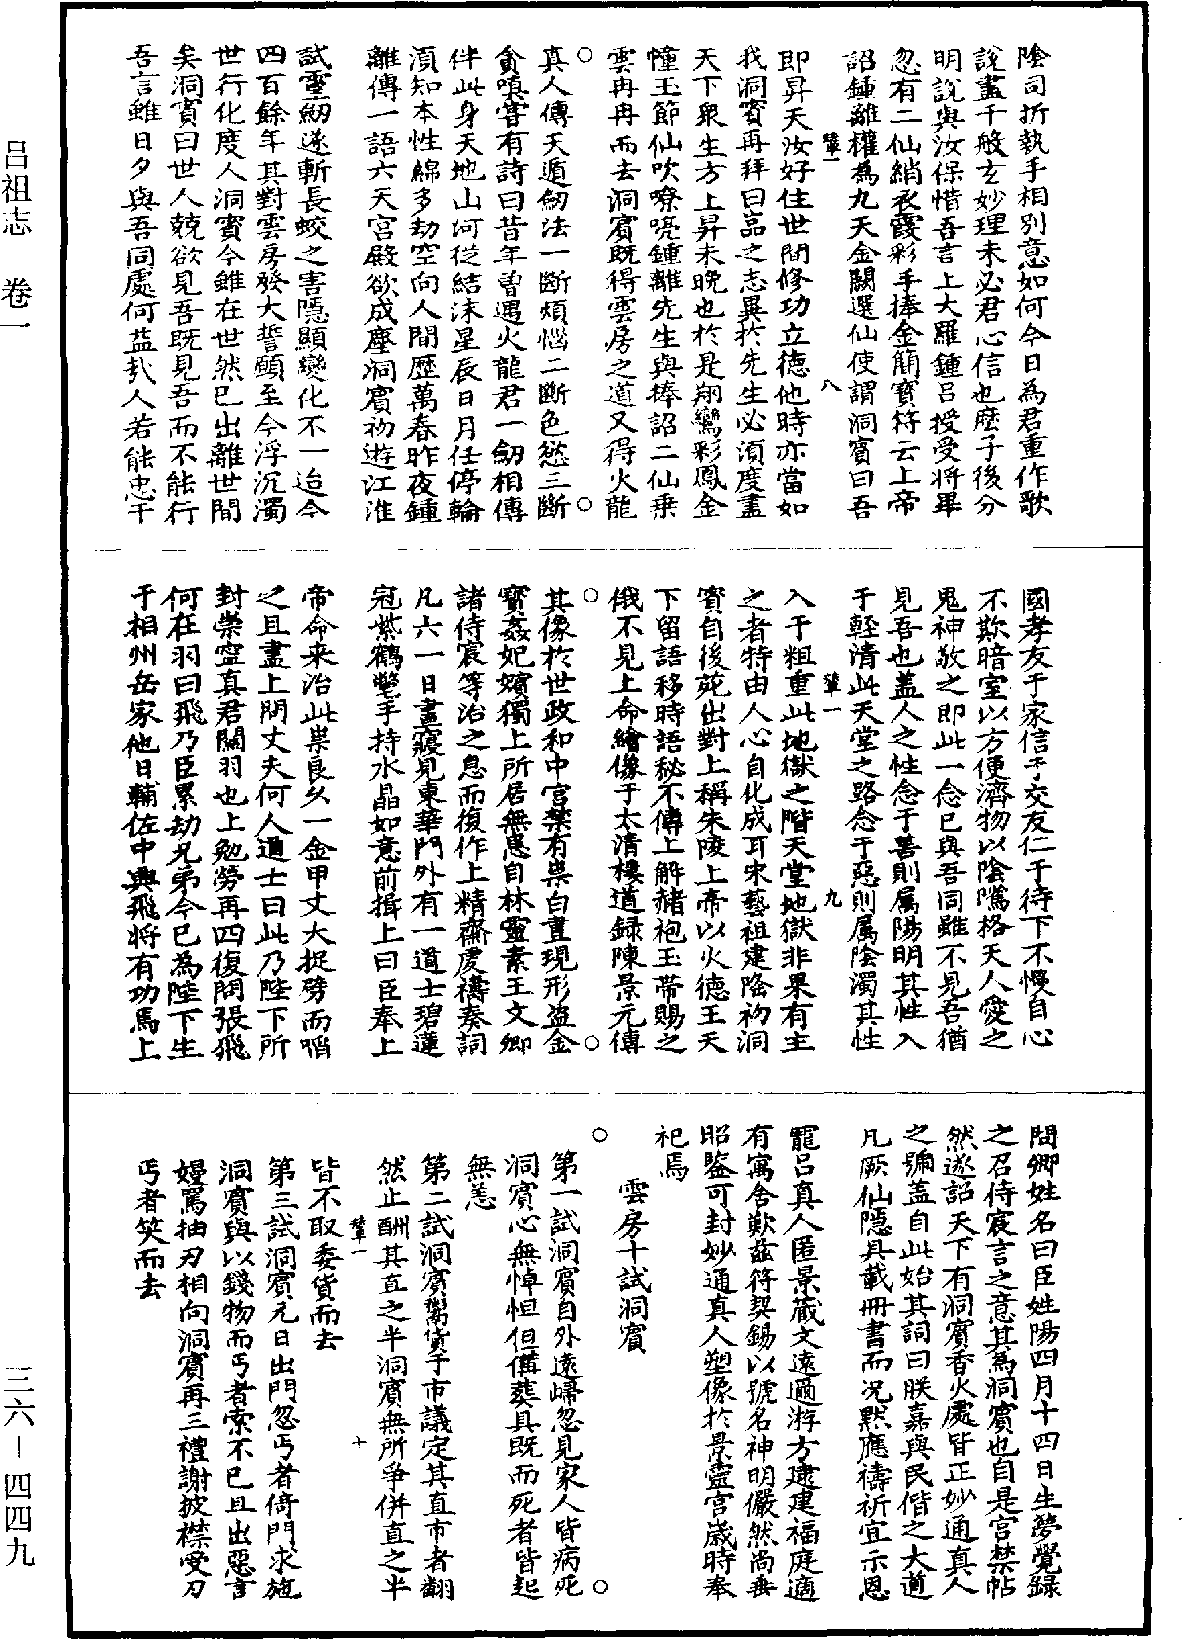 陰司折執手相別意如何今日為君重作歌
說盡千般玄妙理未必君心信也麽子後分
明說與汝保惜吾言上大羅鍾呂授受將畢
忽有二仙綃衣霞彩手捧金簡寶符云上帝
詔鍾離權為九天金闕選仙使謂洞賓曰吾
即昇天汝好住世間修功立德他時亦當如
我洞賓再拜曰嵓之志異於先生必須度盡
天下眾生方上昇未晚也於是翔鸞彩鳳金
幢玉節仙吹嘹喨鍾離先生與捧詔二仙乗
雲冉冉而去洞賓既得雲房之道又得火龍
真人傳天遁劒法一斷煩惱二斷色慾三斷
貪嗔嘗有詩曰昔年曽遇火龍君一劒相傳
伴此身天地山河從結沫星辰日月任停輪
須知本性綿多劫空向人間歷萬春昨夜鍾
離傳一語六天宮殿欲成塵洞賓初遊江淮
試靈劒遂斬長蛟之害隱顯變化不一迨今
四百餘年其對雲房發大誓願至今浮沉濁
世行化度人洞賓今雖在世然已出離世間
矣洞賓曰世人競欲見吾既見吾而不能行
吾言雖日夕與吾同處何益哉人若能忠于
國孝友于家信于交友仁于待下不慢自心
不欺暗室以方便濟物以陰騭格天人愛之
鬼神敬之即此一念已與吾同雖不見吾猶
見吾也蓋人之性念于善則屬陽明其性入
于輕清此天堂之路念于惡則屬陰濁其性
入于粗重此地獄之階天堂地獄非果有主
之者特由人心自化成耳宋藝祖建隆初洞
賓自後苑出對上稱朱陵上帝以火德王天
下留語移時語秘不傳上解赭袍玉帶賜之
俄不見上命繪像于太清樓道録陳景元傳
其像於世政和中宮禁有祟白晝現形盗金
寶姦妃嬪獨上所居無患自林靈素王文卿
諸侍宸等治之息而復作上精齋虔禱奏詞
凡六一日晝寢見東華門外有一道士碧蓮
冠紫鶴氅手持水晶如意前揖上曰臣奉上
帝命来治此祟良久一金甲丈夫捉劈而啗
之且盡上問丈夫何人道士曰此乃陛下所
封崇寧真君關羽也上勉勞再四復問張飛
何在羽曰飛乃臣累劫兄弟今已為陛下生
于相州岳家他日輔佐中興飛將有功焉上
問卿姓名曰臣姓陽四月十四日生夢覺録
之召侍宸言之意其為洞賓也自是宮禁帖
然遂詔天下有洞賓香火處皆正妙通真人
之號蓋自此始其詞曰朕嘉與民偕之大道
凡厥仙隱具載冊書而况黙應禱祈宜示恩
寵呂真人匿景藏文遠邇游方逮建福庭適
有寓舍歎茲符契錫以號名神明儼然尚垂
昭鑒可封妙通真人塑像於景靈宮歲時奉
祀焉
雲房十試洞賓
第一試洞賓自外遠歸忽見家人皆病死
洞賓心無悼怛但備葬具既而死者皆起
無恙
第二試洞賓鬻貨于市議定其直市者翻
然止酬其直之半洞賓無所爭併直之半
皆不取委貨而去
第三試洞賓元日出門忽丐者倚門求施
洞賓與以錢物而丐者索不已且出惡言
嫚罵抽刃相向洞賓再三禮謝披襟受刃
丐者笑而去
呂祖志　卷一
三六－四四九